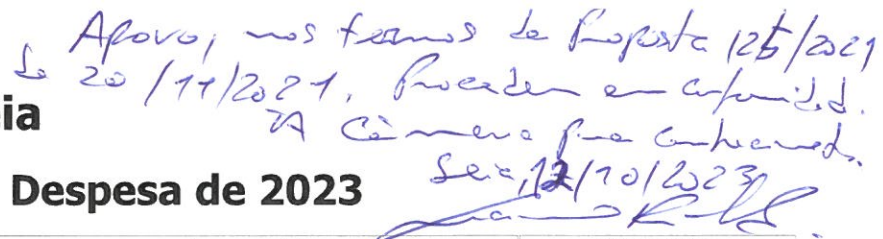 Aprovo, nos termos da Proposta 125/2021
de 20/11/2021. Proceder em conformidade.
ia
À Câmara para conhecimento.
Seia, 12/10/2023
Despesa de 2023